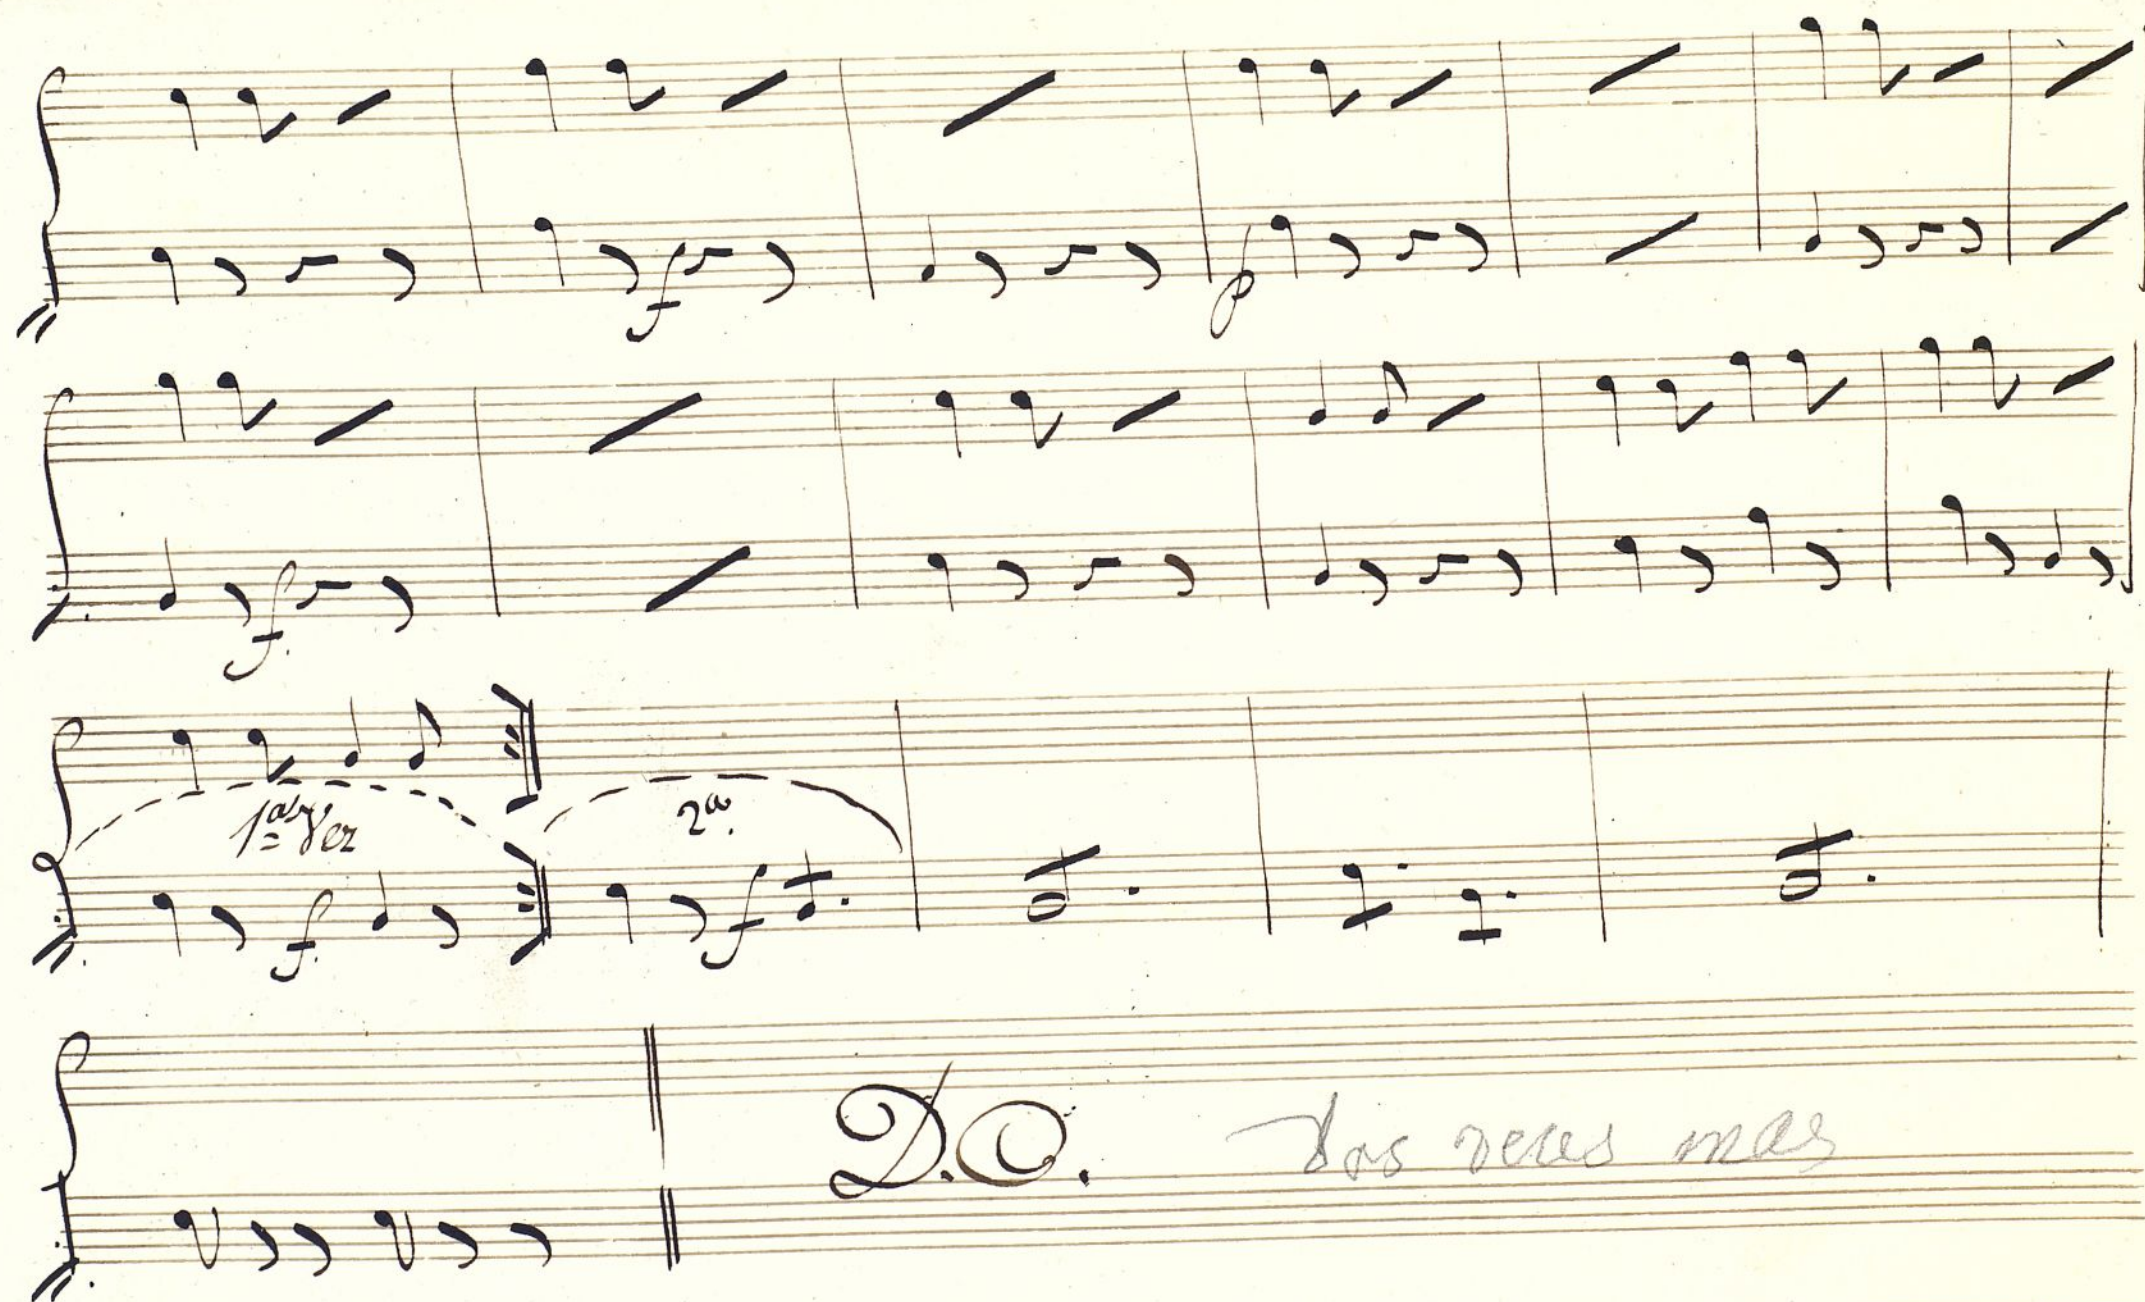 f p
f.
1ª Vez 2ª.
f. f
D.C. Dos veces mas